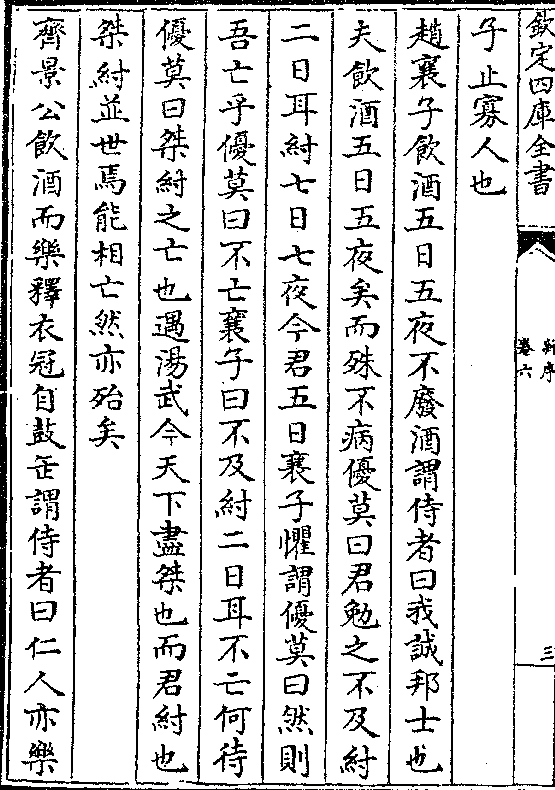 欽定四庫全書
新序
卷六
三
子止寡人也
趙襄子飲酒五日五夜不廢酒謂侍者曰我誠邦士也
夫飲酒五日五夜矣而殊不病優莫曰君勉之不及紂
二日耳紂七日七夜今君五日襄子懼謂優莫曰然則
吾亡乎優莫曰不亡襄子曰不及紂二日耳不亡何待
優莫曰桀紂之亡也遇湯武今天下盡桀也而君紂也
桀紂並世焉能相亡然亦殆矣
齊景公飲酒而樂釋衣冠自鼓缶謂侍者曰仁人亦樂